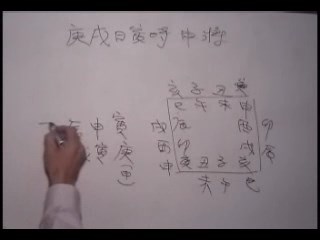 庚戌日寅时申将
亥子丑寅
巳午未申
戌 辰 酉 卯
酉 卯 戌 辰
申 寅丑子亥
未午巳
申寅
寅庚
(申)